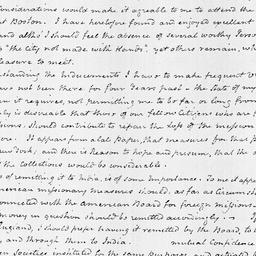 considerations would make it agreeable to me to attend the
at Boston. I have heretofore found and enjoyed excellent
and altho' I should feel the absence of several worthy Perso
to "the city not made with Hands", yet others remain, wh
pleasure to meet.
standing the Inducements I have to make frequent
have not been there for four Years past - the state of my
it requires, not permitting me to be far or long from
is desireable that those of our fellow Citizens who are
should contribute to repair the loss of the mission
It appears from a late Paper, that measures for that p
New York; and there is Reason to hope and presume, that the
the collections would be considerable.
of remitting it to India, is of some importance. To me it appe
American missionary measures should, as far as Circumstan
connected with the American Board for foreign missions
money in question should be remitted accordingly. -
England, I should prefer having it remitted by the Board, to
and through them to India. mutual Confidence
Societies instituted for the same purposes, and actuated